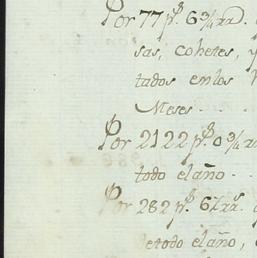 Por 77 p.s 6 3/4 rr.
sas, cohetes, y
tados en los
Meses . . .
Por 2122 p.s 0 3/4 rr
todo el año . .
Por 282 p.s 6 1/2 rr.
de todo el año,